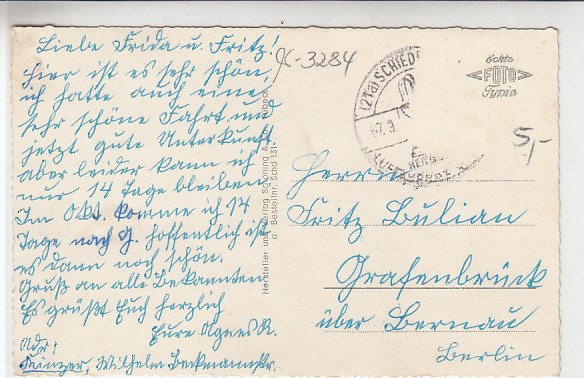 Liebe Frida u. Fritz!
hier ist es sehr schön,
ich hatte auch eine
sehr schöne Fahrt und
jetzt gute Unterkunft
aber leider kann ich
nur 14 Tage bleiben
Im Okt. komme ich 14
Tage nach G. hoffentlich ist
es dann noch schön.
Gruß an alle Bekannten
Es grüßt Euch herzlich
Eure Agnes R.
Adr.
Wilhelm Beckmannstr.
K-3284
Hersteller und Verlag Schöning &
Bestellnr. Schd 131
(21a) SCHIED
LUFTKURORT
Echte
FOTO
Typie
5,-
Herrn
Fritz Bulian
Grafenbrück
über Bernau
Berlin